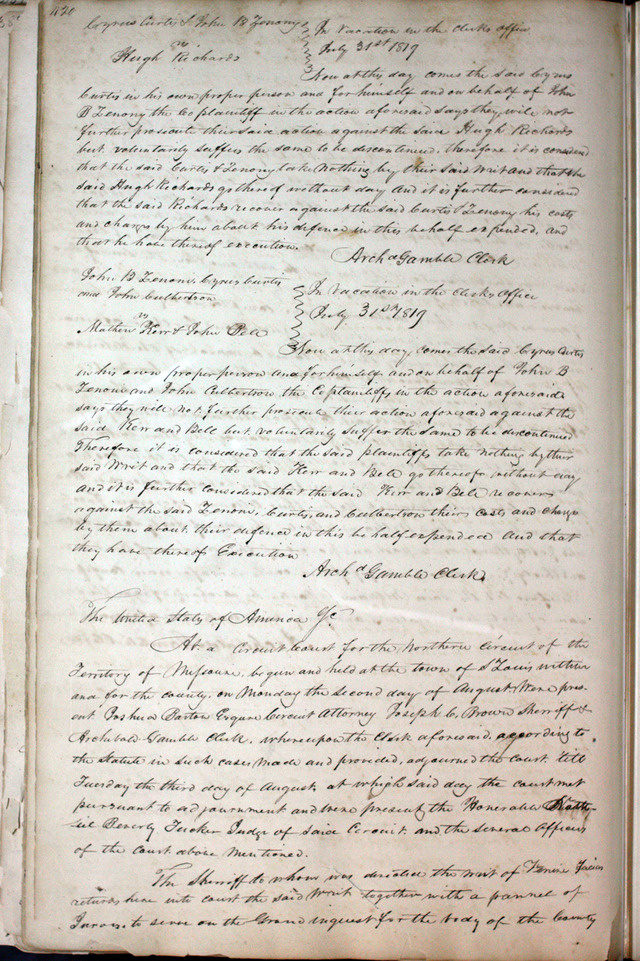 Cyrus Curtis & John B Zenony
vs
Hugh Richards
In Vacation in the clerks office
July 31st 1819
Now at thy day comes the said Cyrus
Curtis in his own proper person and for himself and on behalf of John
B Zenony the Co plaintiff in the action aforesaid says they will not
further prosecute their said action against the said Hugh Richards
but voluntarily suffers the same to be discontinued. therefore it is considered
that the said Curtis & Zenony take nothing by their said writ and that the
said Hugh Richards go thereof without day And it is further considered
that the said Richards recover against the said Curtis & Zenony his costs
and charges by him about his defence in this behalf expended, and
that he have thereof execution.
Archd Gamble Clerk
John B Zenoni, Cyrus Curtis
and John Culbertson
vs
Mathew Kerr & John Bell
In Vacation in the Clerks Office
July 31st 1819
Now at this day, comes the said Cyrus Curtis
in his own proper person and for himself, and on behalf of John B
Zenoni and John Culbertson, the Co plaintiffs in the action aforesaid
says they will not further prosecute their action aforesaid against the
said Kerr and Bell but voluntarily suffer the same to be discontinued
Therefore it is considered that the said plaintiffs take nothing by their
said Writ and that the said Kerr and Bell go thereof without day
and it is further considered that the said Kerr and Bell recover
against the said Zenoni, Curtis, and Culbertson their costs and charges
by them about their defence in this behalf expended And that
they have thereof Execution
Archd Gamble Clerk
The United States of America &c
At a Circuit Court for the Northern Circuit of the
Territory of Missouri, begun and held at the town of St Louis within
and for the county, on Monday the second day of August, Were pres-
ent, Joshua Barton Esqure Circuit Attorney Joseph C, Brown Sherriff &
Archibald Gamble Clerk, whereupon the Clerk aforesaid, according to
the Statute in such cases made and provided, adjourned the Court till
Tuesday the third day of August at which said day the court met
pursuant to adjournment and were present, the Honerable Nathan-
iel Beverly Tucker Judge of said Circuit and the several Officers
of the court above mentioned.
The Sherriff to whom was directed the writ of Venire facias
returns here into court the said Writ together with a pannel of
Jurors, to serve on the Grand inquest for the body of the County